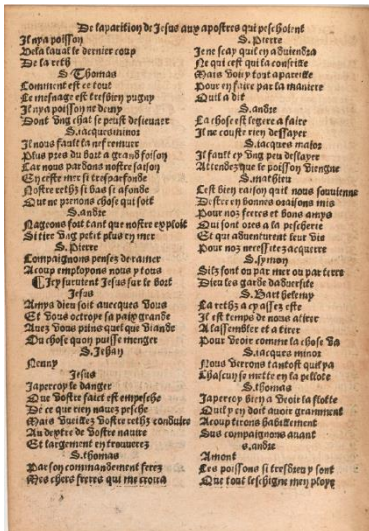 De laparition de Jesus aux apostres qui peschoient
Il nya poisson
Vela laual le dernier coup
De la reth
S. Thomas
Comment est ce tout
Ce mesnage est tresbien pugny
Il nya poisson ne demy
Dont vng chat se peust desieuner
S. iacques minor
Il nous fault la nef remuer
Plus pres du bort a grand foison
Car nous pardons nostre saison
En ceste mer si tresparfonde
Nostre rethz si bas se afonde
Que ne prenons chose qui soit
S. andre
Nageons soit tant que nostre exploit
Si tire vng petit plus en mer
S. Pierre
Compaignons pensez de ramer
A coup employons nous y tous
Icy surutent Jesus sur le bort
Jesus
Amys dieu soit auecques vous
Et vous octroye sa paix grande
Auez vous prins quelque viande
Ou chose quon puisse menger
S. Jehan
Nenny
Jesus
Japercoy le danger
Que vostre faict est empesche
De ce que rien nauez pesche
Mais vueillez vostre rethz conduire
Au deptre de vostre nauire
Et largement en trouuerez
S. thomas
Par son commandement ferez
Mes chers freres qui me croira
S. Pierre
Je ne scay quil en aduiendra
Ne qui cest qui la conseille
Mais voiz y tout apareille
Pour en faire par la maniere
Quil a dit
S. andre
La chose est legere a faire
Il ne couste rien dessayer
S. iacques maior
Il fault cy vng peu dessayer
Attendez que le poisson viengne
S. mathieu
Cest bien raison quil nous souuienne
Destre en bonnes oraisons mis
Pour noz freres et bons amys
Qui sont ores a la pescherie
Et qui aduenturent leur vie
Pour noz necessitez acquerre
S. symon
Silz sont ou par mer ou par terre
Dieu les garde daduersite
S. Barthelemy
La rethz a cy assez este
Il est temps de nous atirer
A lassembler et a tirer
Pour veoir comme la chose va
S. iacques minor
Nous verrons tantost quil ya
Chascun se mette en la pellote
S. thomas
Japercoy bien a veoir la flotte
Quil y en doit auoir grantment
A coup tirons habillement
Sus compaignons auant
S. andre
Amont
Les poissons si tresbien y sont
Que tout leschigne men ploye